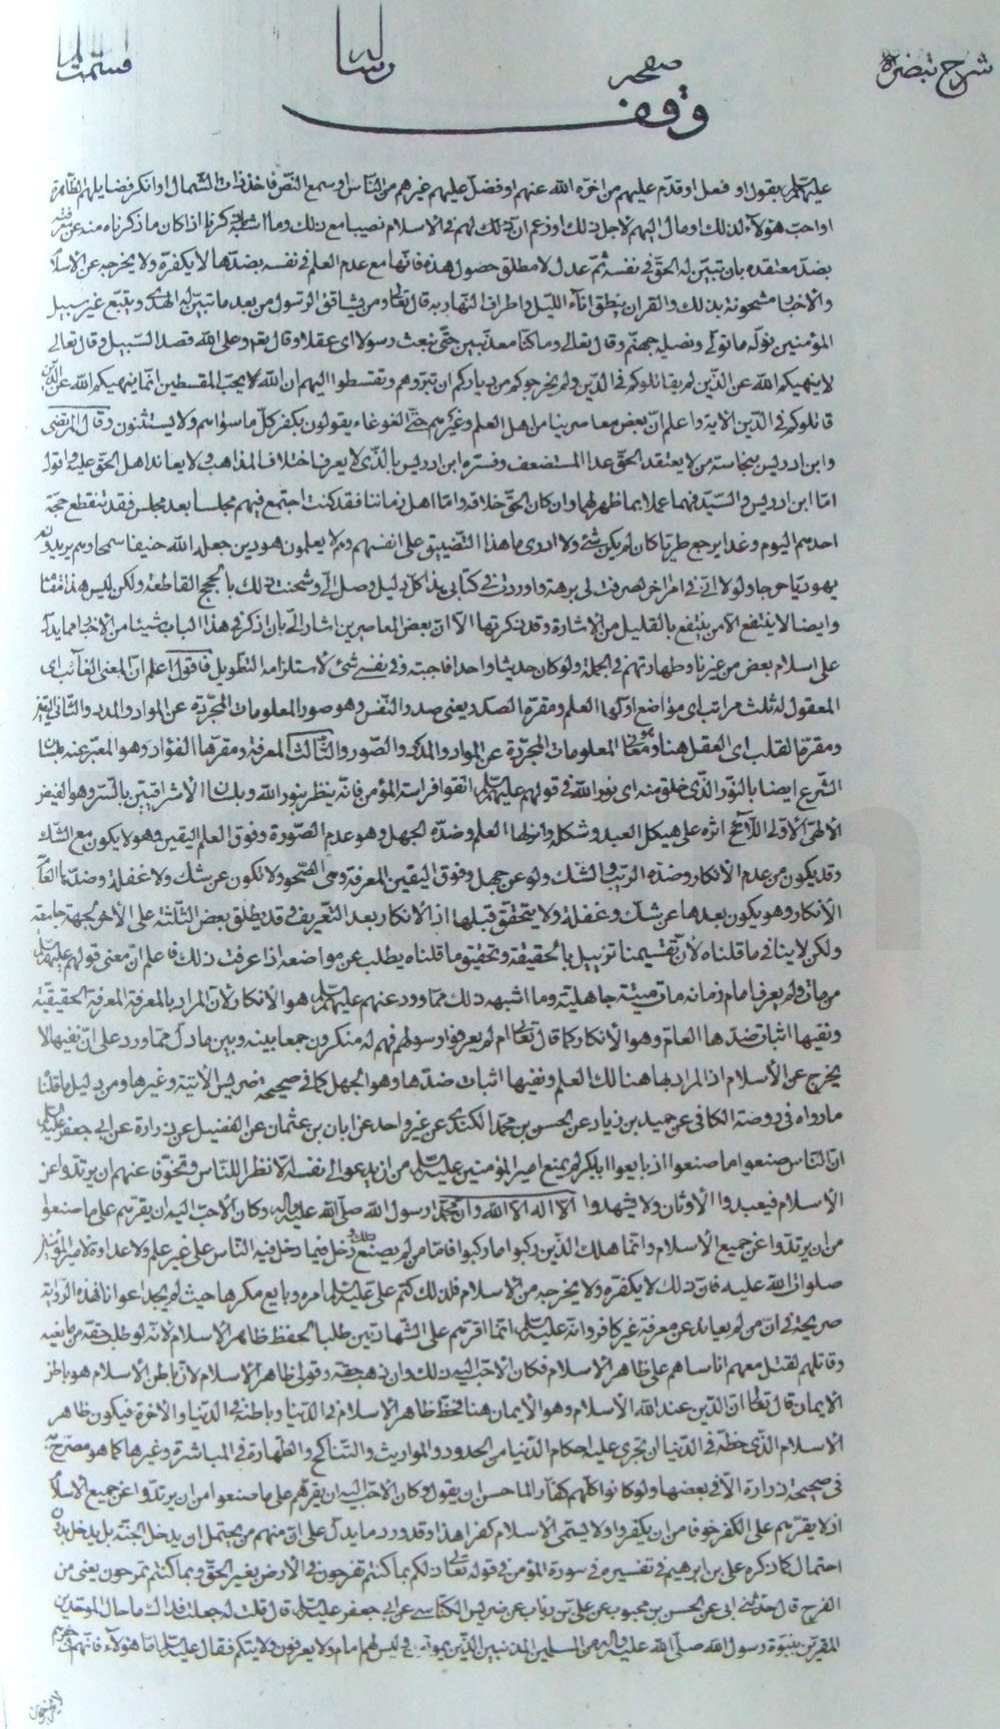 شرح تبصرة
صفحه
رساله
قسمت
وقف
عليهم بقول او فعل او قدّم عليهم من اخّره الله عنهم او فضّل عليهم غيرهم من الناس او سمع النص فاخذ ذات الشمال او انكر فضايلهم الظاهرة
او احبّ هؤلاء لذلك او مال اليهم لاجل ذلك او زعم ان لهم في الاسلام نصيبا مع ذلك وما اشبه اذا كان ما ذكرناه منه عن
بضدّ معتقده بان تبيّن له الحق في نفسه ثم عدل لا مطلق حصول هذه فانها مع عدم العلم في نفسه بضدّها لا يكفره ولا يخرجه عن الاسلام
والاخبار مشحونة بذلك والقران ينطق اناء الليل واطراف النهار به قال تعالى ومن يشاقق الرسول من بعد ما تبيّن له الهدى ويتبع غير سبيل
المؤمنين نولّه ما تولى ونصله جهنم وقال تعالى وما كنا معذبين حتى نبعث رسولا اي عقلا وقال تعالى وعلى الله قصد السبيل وقال تعالى
لا ينهيكم الله عن الذين لم يقاتلوكم في الدين ولم يخرجوكم من دياركم ان تبرّوهم وتقسطوا اليهم ان الله يحبّ المقسطين انما ينهيكم الله عن الذين
قاتلوكم في الدين الاية واعلم ان بعض معاصرينا من اهل العلم وغيرهم حتى الغوغاء يقولون بكفر كل ما سواهم ولا يستثنون وقال المرتضى
وابن ادريس بنجاسة من لا يعتقد الحق عدا المستضعف وفسره ابن ادريس بالذي لا يعرف اختلاف المذاهب ولا يعاند اهل الحق عليه واقول
اما ابن ادريس والسيّد فهما عملا بما ظهر لهما وان كان الحق خلافه واما اهل زماننا فقد كنت اجتمع فيهم مجلسا بعد مجلس فقد تنقطع حجة
احدهم اليوم وغدا يرجع طريا كان لم يكن شيء ولا ادري ما هذا التضييق على انفسهم ولا يعلمون هو دين جعله الله حنيفا سمحا وهم يريدونه
يهوديا حرجا ولولا انّي في امر اخر لصرفت لي برهة واوردت في كتابي هذا كل دليل وصل الي وشحنت ذلك بالحجج القاطعة ولكن ليس هذا
وايضا لا ينتفع الا من ينتفع بالقليل من الاشارة وقد ذكرتها الا ان بعض المعاصرين اشار الي بان اذكر في هذا الباب شيئا من الاخبار مما يدل
على اسلام بعض من غيرنا وطهارتهم في الجملة ولو كان حديثا واحدا فاجبته وفي نفسي شيء لاستلزامه التطويل فاقول اعلم ان المعنى الغائب اي
المعقول له ثلث مراتب اي مواضع اولها العلم ومقرّه الصدر يعني صدر النفس وهو صور المعلومات المجردة عن المواد والمدد والثاني اليقين
ومقرّه القلب اي العقل هنا وهو معاني المعلومات المجردة عن المواد والمدد والصور والثالث المعرفة ومقرّها الفؤاد وهو المعبّر عنه بلسان
الشرع ايضا بالنور الذي خلق منه اي نور الله في قولهم عليهم السلام اتقوا فراسة المؤمن فانه ينظر بنور الله وبلسان الاشراقيين بالسرّ وهو الفيض
الالهي الاولي اللايح اثره على هيكل العبد وشكله وانزلها العلم وضدّه الجهل وهو عدم الصورة وفوق العلم اليقين وهو لا يكون مع الشك
وقد يكون من عدم الانكار وضده الريب والشك ولو عن جهل وفوق اليقين المعرفة وهي الصحو ولا تكون عن شك ولا غفلة وضدّها العام
الانكار وهو يكون بعدها عن شك وغفلة ولا يتحقق قبلها اذ الانكار بعد التعريف وقد يطلق بعض الثلثة على الاخر لجهة جامعة
ولكن لا ينافي ما قلناه لان تقسيمنا تزييل بالحقيقة وتحقيق ما قلناه يطلب عن مواضعه اذا عرفت ذلك فاعلم ان معنى قولهم عليهم السلام
من مات ولم يعرف امام زمانه مات ميتة جاهلية وما اشبه ذلك مما ورد عنهم عليهم السلام هو الانكار لان المراد بالمعرفة المعرفة الحقيقية
ونفيها اثبات ضدّها العام وهو الانكار كما قال تعالى ام لم يعرفوا رسولهم فهم له منكرون جمعا بينه وبين ما دل مما ورد على ان نفيها لا
يخرج عن الاسلام اذ المراد بها هنالك العلم ونفيها اثبات ضدّها وهو الجهل كما في صحيحة ضريس الاتية وغيرها ومن دليل ما قلنا
ما رواه في روضة الكافي عن حميد بن زياد عن الحسن بن محمد الكندي عن غير واحد عن ابان بن عثمان عن الفضيل عن زرارة عن ابي جعفر عليه السلام
ان الناس صنعوا ما صنعوا اذ بايعوا ابابكر لم يمنع امير المؤمنين عليه السلام من ان يدعو الى نفسه الا نظرا للناس وتخوّفا عنهم ان يرتدّوا عن
الاسلام فيعبدوا الاوثان ولا يشهدوا ان لا اله الا الله وان محمدا رسول الله صلى الله عليه واله وكان الاحبّ اليه ان يقرّهم على ما صنعوا
من ان يرتدّوا عن جميع الاسلام وانما هلك الذين ركبوا ما ركبوا فاما من لم يصنع ذلك ودخل فيما دخل فيه الناس على غير علم ولا عداوة لامير المؤمنين
صلوات الله عليه فان ذلك لا يكفره ولا يخرجه من الاسلام فلذلك كتم علي عليه السلام امره وبايع مكرها حيث لم يجد اعوانا فهذه الرواية
صريحة في ان من لم يعاند عن معرفة غير كافر وانه عليه السلام انما اقرّهم على الشهادتين طلبا لحفظ ظاهر الاسلام لانه لو طلب حقه
وقاتلهم لقتل معهم اناسا هم على ظاهر الاسلام فكان الاحبّ اليه ذلك وان ذهب حقه وقولي ظاهر الاسلام لان باطن الاسلام هو باطن
الايمان قال تعالى ان الدين عند الله الاسلام وهو الايمان هنا فحظ ظاهر الاسلام في الدنيا وباطنه في الدنيا والاخرة فيكون ظاهر
الاسلام الذي حظه في الدنيا ان تجري عليه احكام الدنيا من الحدود والمواريث والتناكح والطهارة في المباشرة وغيرها كما هو مصرّح به
في صحيحة زرارة الا في بعضها ولو كانوا كلهم كفارا لما حسن ان يقول وكان الاحبّ اليه ان يقرّهم على ما صنعوا من ان يرتدّوا عن جميع الاسلام
اذ لا يقرّهم على الكفر خوفا من ان يكفروا ولا يسمى الاسلام كفرا هذا وقد ورد ما يدل على ان منهم من يحتمل ان يدخل الجنة بل يدخل بدون
احتمال كما ذكره علي بن ابرهيم في تفسيره في سورة المؤمن في قوله تعالى ذلكم بما كنتم تفرحون في الارض بغير الحق وبما كنتم تمرحون يعني من
الفرح قال حدثني ابي عن الحسن بن محبوب عن علي بن رئاب عن ضريس الكناسي عن ابي جعفر عليه السلام قال قلت له جعلت فداك ما حال الموحدين
المقرين بنبوة رسول الله صلى الله عليه واله من المسلمين المذنبين الذين يموتون وليس لهم امام ولا يعرفون ولايتكم فقال عليه السلام اما هؤلاء فانهم في